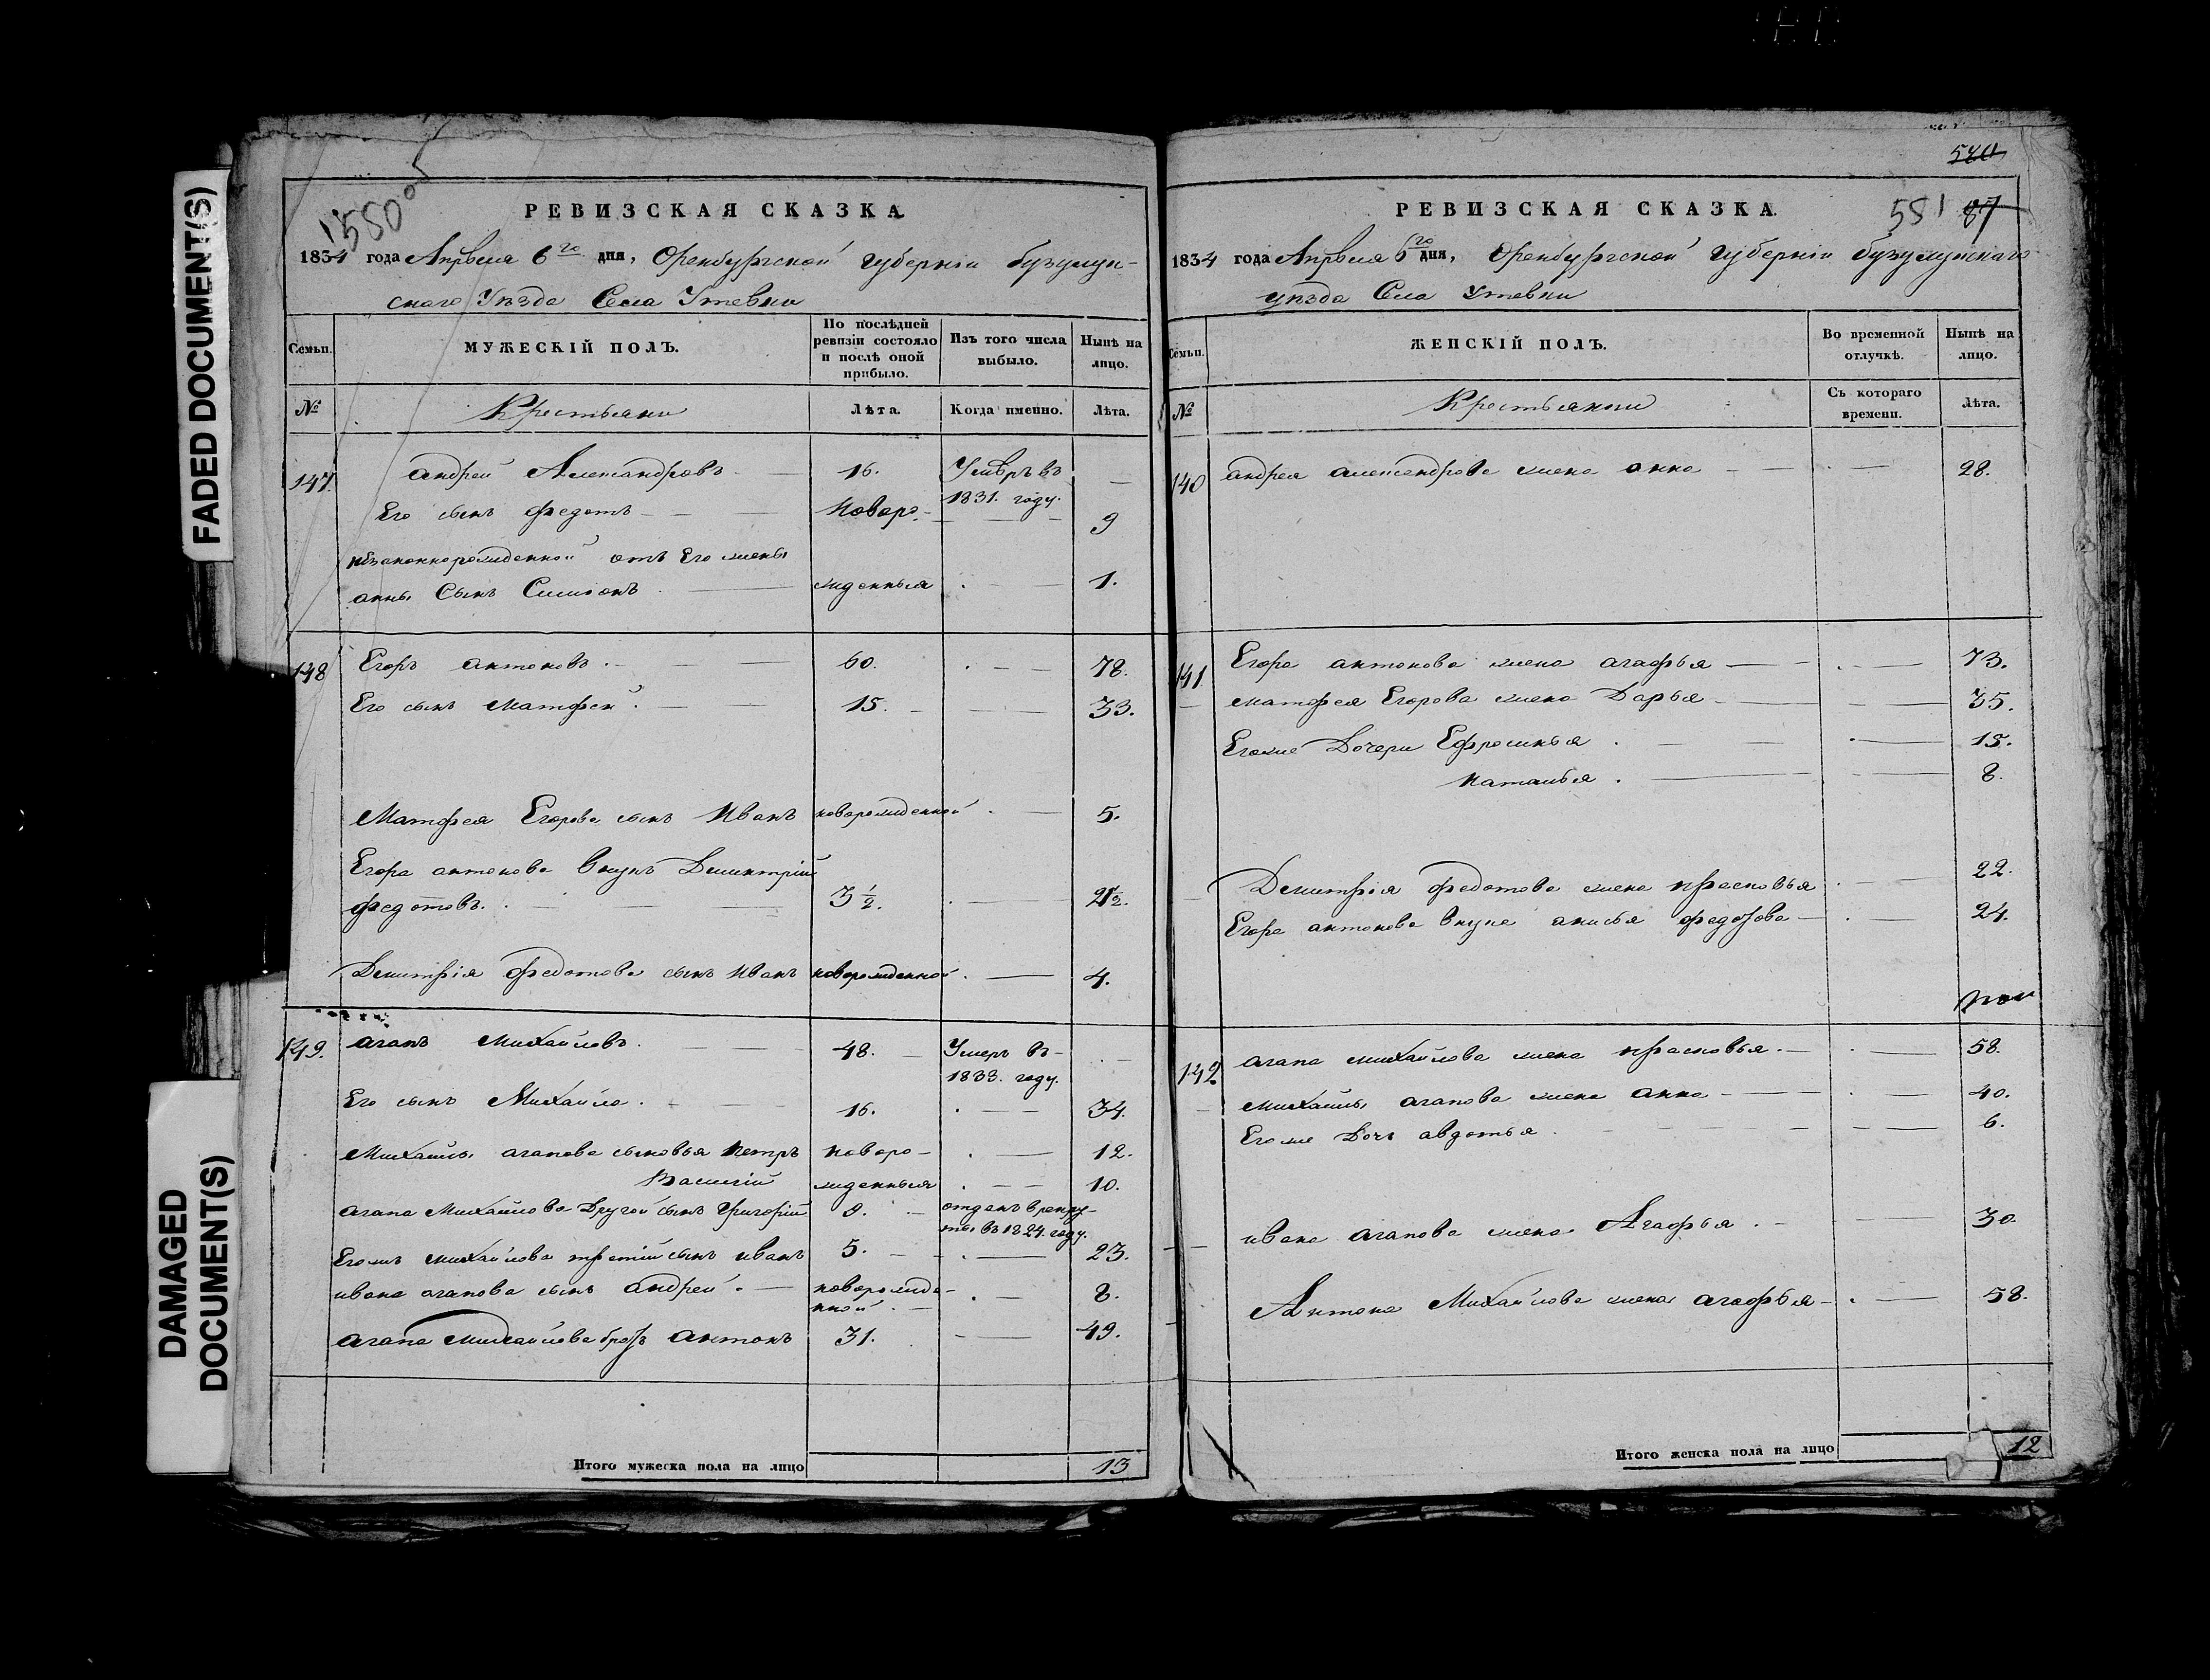 FADED DOCUMENT(S)
DAMAGED
DOCUMENT(S)
550
РЕВИЗСКАЯ СКАЗКА
1834 года Апрѣля 6го дня, Оренбургской губернiи бузулук-
скаго Уѣзда Села Утевки
Семьи.
МУЖЕСКІЙ ПОЛЪ.
По послѣдней
ревизіи состояло
и послѣ оной
прибыло.
Изъ того числа
выбыло.
Нынѣ на
лицо.
№
Крестьяни
Лѣта.
Когда именно.
Лѣта.
147. андрей Александровъ 16. Умѣръ въ
1831. году.
Его сынъ федотъ Новоро- 9
незаконнорожденной отъ Его жены
анны Сынъ Симіонъ жденныя 1.
148 Егоръ антоновъ 60. 78.
Его сынъ Матфей 15. 33.
Матфея Егорова сынъ Иванъ новорожденной 5.
Егора антонова внукъ Димитрій
федотовъ. 3 1/2. 21 1/2.
Димитрія федотова сынъ Иванъ новорожденной 4.
149. агапъ Михайловъ 48. Умеръ въ
1833. году.
Его сынъ Михайло 16. 34.
Михайлы агапова сыновья петръ новоро- 12.
Василій жденныя 10.
агапа Михайлова Другой сынъ Григорій 9. отданъ в рекру-
ты въ 1824. году.
Егожъ михайлова третій сынъ иванъ 5. 23.
ивана агапова сынъ андрей новорожде-
нной 8.
агапа михайлова братъ антонъ 31. 49.
Итого мужеска пола на лицо 13
580
551 87
РЕВИЗСКАЯ СКАЗКА.
1834 года Апрѣля 6го дня, Оренбургской губернiи бузулускаго
уѣзда Села Утевки
Семьи.
ЖЕНСКІЙ ПОЛЪ.
Во временной
отлучкѣ.
Нынѣ на
лицо.
№
Крестьянки
Съ котораго
времени.
Лѣта.
140 андрея александрова жена анна 28.
141 Егора антонова жена агафья 73.
матфея Егорова жена Дарья 35.
Егоже Дочери Ефросинья 15.
наталья 8.
Димитрія федотова жена прасковья 22.
Егора антонова внука анисья федотова 24.
142 агапа михайлова жена прасковья 58.
михайлы агапова жена анна 40.
Егоже Дочь авдотья 6.
ивана агапова жена Агафья 30.
Антона Михайлова жена агафья 58.
Итого женска пола на лицо 12